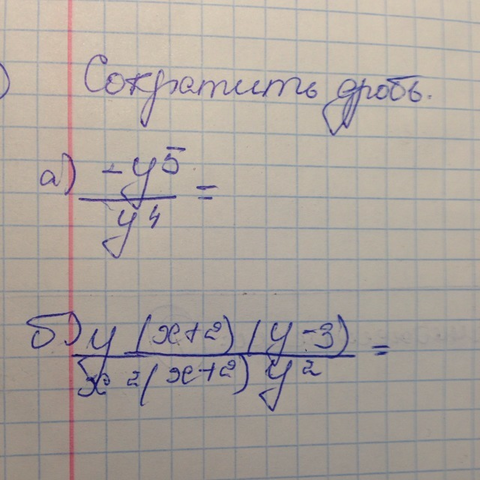 )
Сократить дробь.
а) -y⁵/y⁴ =
б) y(x+2)(y-3)/x²(x+2)y² =